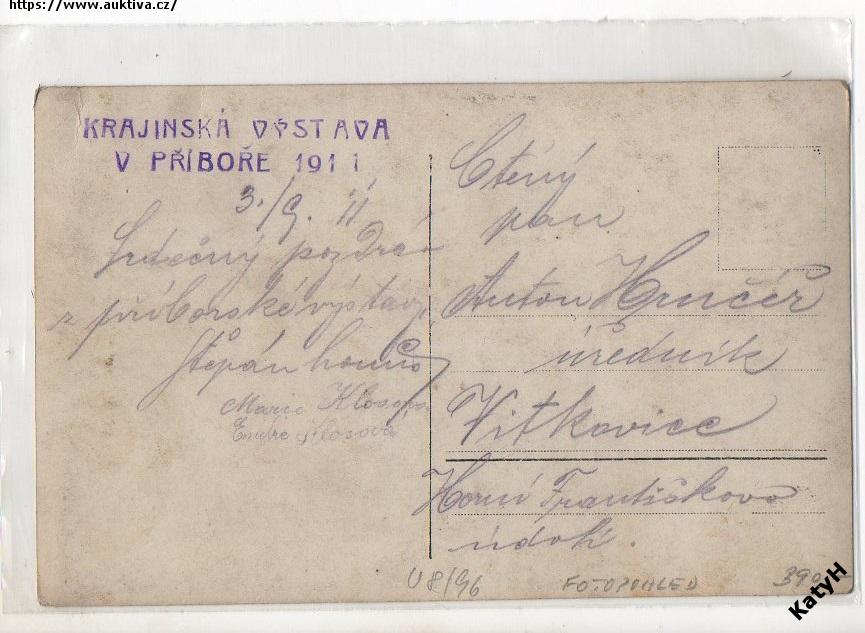 https://www.auktiva.cz/
KRAJINSKÁ VÝSTAVA
V PŘÍBOŘE 1911
3./9. 11
Srdečný pozdrav
z příborské výstavy
Štěpán
Marie Klosova
Klosová
Ctěný
pan
Anton Hrnčéř
úředník
Vitkovice
Horní Františkovo
údolí.
U8/96
FOTOPOHLED
390
KatyH